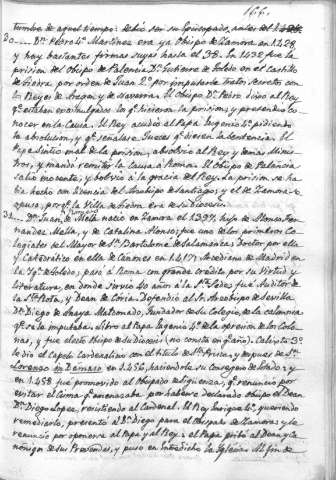 166.
tumbre de aquel tiempo: debió ser su Episcopado antes del 1425.
30 Dn. Pedro 4º Martinez era ya Obispo de Zamora en 1428
y hay bastantes firmas suyas hasta el 38. En 1432 fue la
prision del Obispo de Palencia Dn. Gutierre de Toledo en el Castillo
de Tiedra por orden de Juan 2º por imputarle tratos secretos con
los Reyes de Aragon, y de Navarra. El Obispo Dn. Pedro dijo al Rey
qe. estaban excomulgados los qe. hicieron la prision, y pretendio co-
nocer en la Causa. El Rey acudió al Papa Eugenio 4º pidiendo
la absolucion, y qe. señalase Jueces qe. diesen la sentencia. El
Papa sintio mal de la prision, absolvió al Rey y demas Minis-
tros, y mandó remitir la Causa a Roma. El Obispo de Palencia
salio inocente, y bolvió a la gracia del Rey. La prision se ha-
bia hecho con licencia del Arzobispo de Santiago; y el de Zamora se
opuso, porqe. la Villa de Tiedra era de su Diocesis.
31 Dn. Juan de Mela nacio en Zamora el 1397, hijo de Alonso Fer-
nandez Mella, y de Catalina Alonso; fue uno de los primeros Co-
legiales del Mayor de Sn. Bartolomé de Salamanca, Doctor por ella
y Catedratico en ella de Canones en 1417, Arcediano de Madrid en
la Yga. de Toledo, pasó a Roma con grande credito por su Virtud y
Literatura, en donde sirvio 40 años a la Sta. Sede, fue Auditor de
la Sta. Rota, y Dean de Coria. Defendió al Sr. Arzobispo de Sevilla
Dn. Diego de Anaya Maldonado, Fundador de su Colegio, de la calumnia
qe. se le imputaba. Libró al Papa Eugenio 4º de la opresion de los Colo-
nas, y fue electo Obispo de su Diocesis (no consta en qe. año). Calixto 3º
le dió el Capelo Cardenalicio con el titulo de Sta. Prisca, y despues de Sn.
Lorenzo in Damaso en 1456, haciendole su Consegero de Estado; y
en 1458 fue promovido al Obispado de Siguenza, qe. renuncio por
evitar el Cisma qe. amenazaba por haberse declarado Obispo el Dean
Dn. Diego Lopez, resistiendo al Cardenal. El Rey Enrique 4º, queriendo
remediarlo, presentó al Dn. Diego para el Obispado de Zamora, y le
renuncio por oponerse al Papa y al Rey: el Papa privó al Dean y Ca-
nonigos de sus Prevendas, y puso en Entredicho la Iglesia. Al fin de